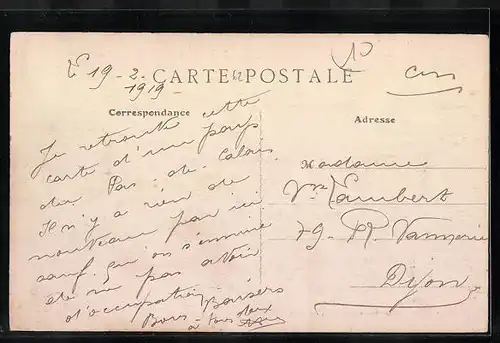 Le 19-2-
1919-
CARTE POSTALE
Correspondance
Je retrouve cette
carte d'un pays
du Pas-de-Calais
Il n'y a rien de
nouveau par ici
sauf qu'on s'ennuie
de ne pas avoir
d'occupation
Bons Baisers
à tous deux
Adresse
Madame
Vve Lambert
79 R. Vannerie
Dijon